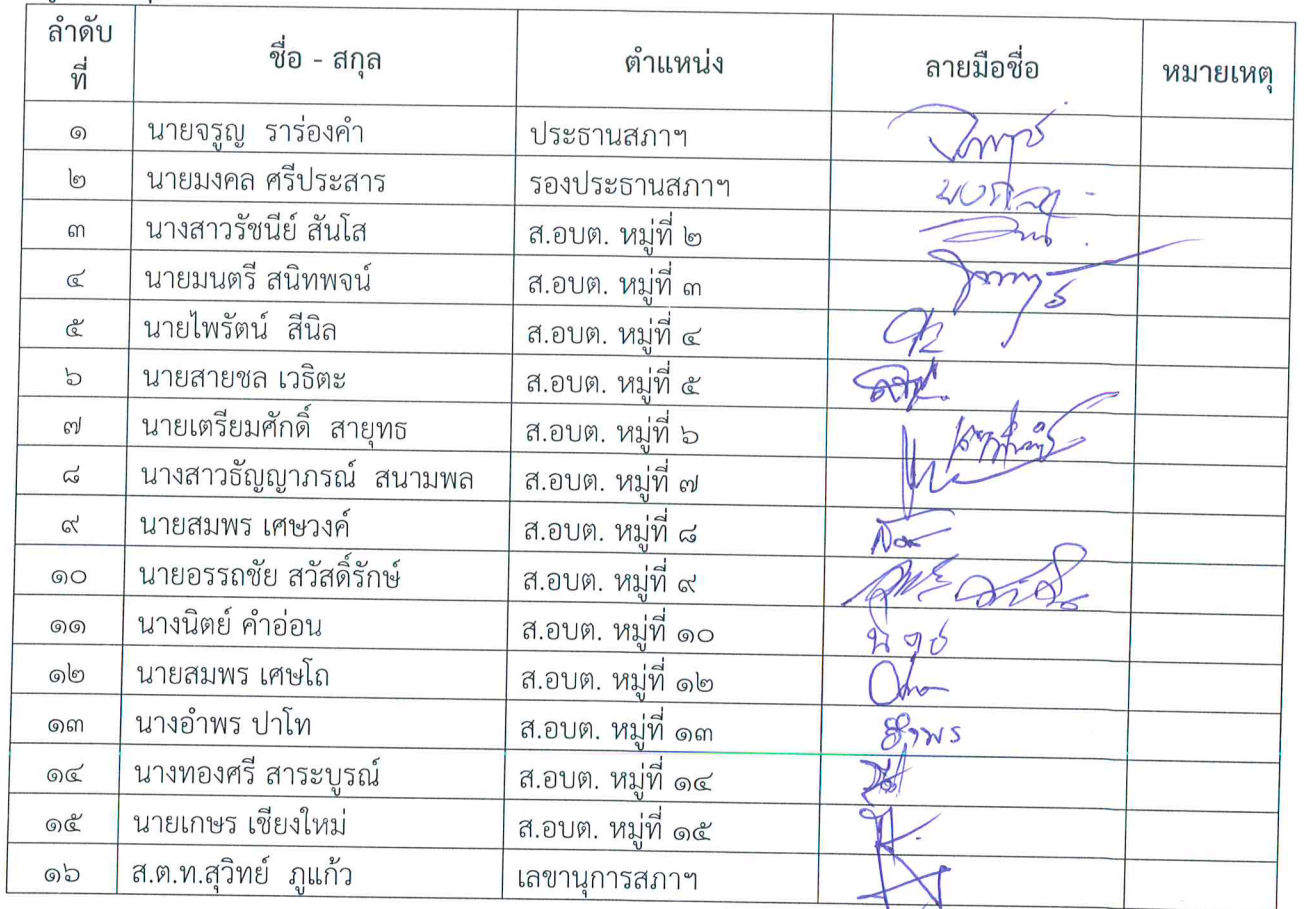 ลำดับ
ที่
ชื่อ - สกุล
ตำแหน่ง
ลายมือชื่อ
หมายเหตุ
๑ นายจรูญ ราร่องคำ ประธานสภาฯ
๒ นายมงคล ศรีประสาร รองประธานสภาฯ มงคล
๓ นางสาวรัชนีย์ สันโส ส.อบต. หมู่ที่ ๒
๔ นายมนตรี สนิทพจน์ ส.อบต. หมู่ที่ ๓
๕ นายไพรัตน์ สีนิล ส.อบต. หมู่ที่ ๔
๖ นายสายชล เวธิตะ ส.อบต. หมู่ที่ ๕
๗ นายเตรียมศักดิ์ สายุทธ ส.อบต. หมู่ที่ ๖
๘ นางสาวธัญญาภรณ์ สนามพล ส.อบต. หมู่ที่ ๗
๙ นายสมพร เศษวงค์ ส.อบต. หมู่ที่ ๘
๑๐ นายอรรถชัย สวัสดิ์รักษ์ ส.อบต. หมู่ที่ ๙
๑๑ นางนิตย์ คำอ่อน ส.อบต. หมู่ที่ ๑๐ นิตย์
๑๒ นายสมพร เศษโถ ส.อบต. หมู่ที่ ๑๒
๑๓ นางอำพร ปาโท ส.อบต. หมู่ที่ ๑๓ อำพร
๑๔ นางทองศรี สาระบูรณ์ ส.อบต. หมู่ที่ ๑๔
๑๕ นายเกษร เชียงใหม่ ส.อบต. หมู่ที่ ๑๕
๑๖ ส.ต.ท.สุวิทย์ ภูแก้ว เลขานุการสภาฯ